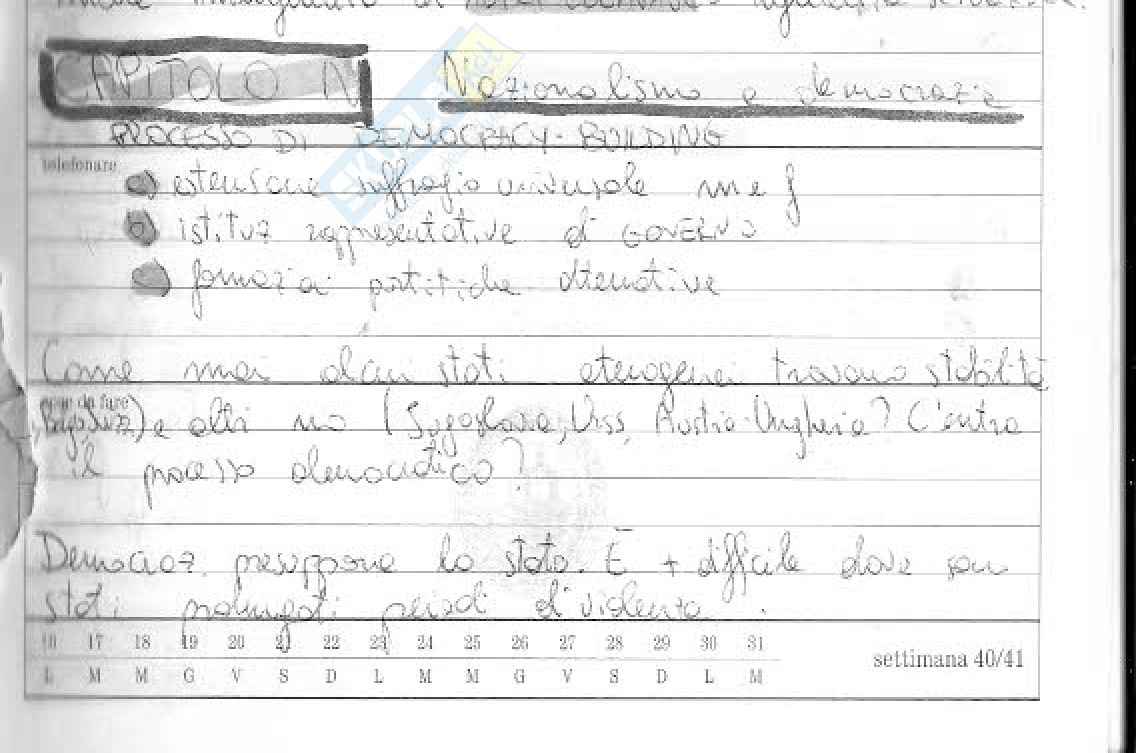 CAPITOLO IV Nazionalismo e democrazia
PROCESSO DI DEMOCRACY-BUILDING
telefonare
a) estensione suffragio universale m e f
b) istituz rappresentative di GOVERNO
formazioi partitiche alternative
Come mai alcuni stati eterogenei trovano stabilità
cose da fare
e altri no (Jugoslavia, Urss, Austria-Ungheria? C'entra
il processo democratico?
Democraz. presuppone lo stato. È + difficile dove son
stati prolungati periodi di violenza.
16 17 18 19 20 21 22 23 24 25 26 27 28 29 30 31
settimana 40/41
L M M G V S D L M M G V S D L M